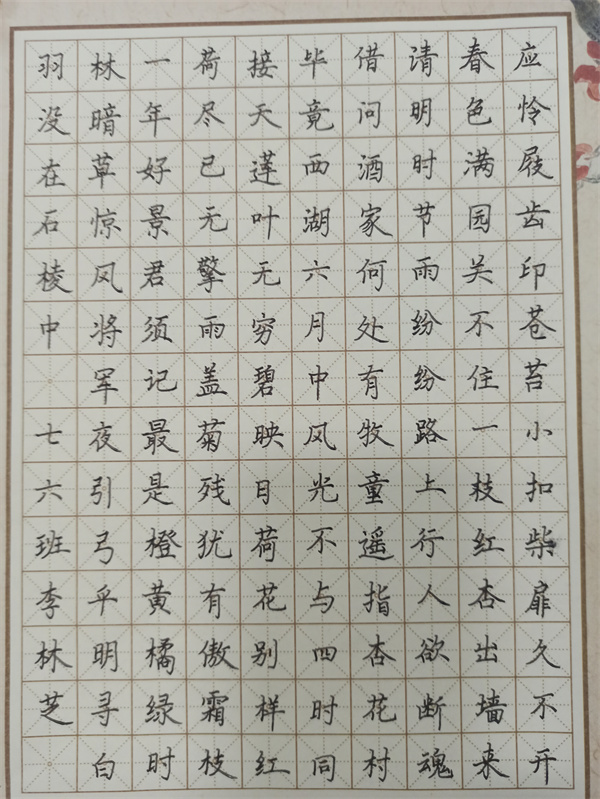 应怜屐齿印苍苔小扣柴扉久不开
春色满园关不住一枝红杏出墙来
清明时节雨纷纷路上行人欲断魂
借问酒家何处有牧童遥指杏花村
毕竟西湖六月中风光不与四时同
接天莲叶无穷碧映日荷花别样红
荷尽已无擎雨盖菊残犹有傲霜枝
一年好景君须记最是橙黄橘绿时
林暗草惊风将军夜引弓平明寻白
羽没在石棱中 七六班李林芝